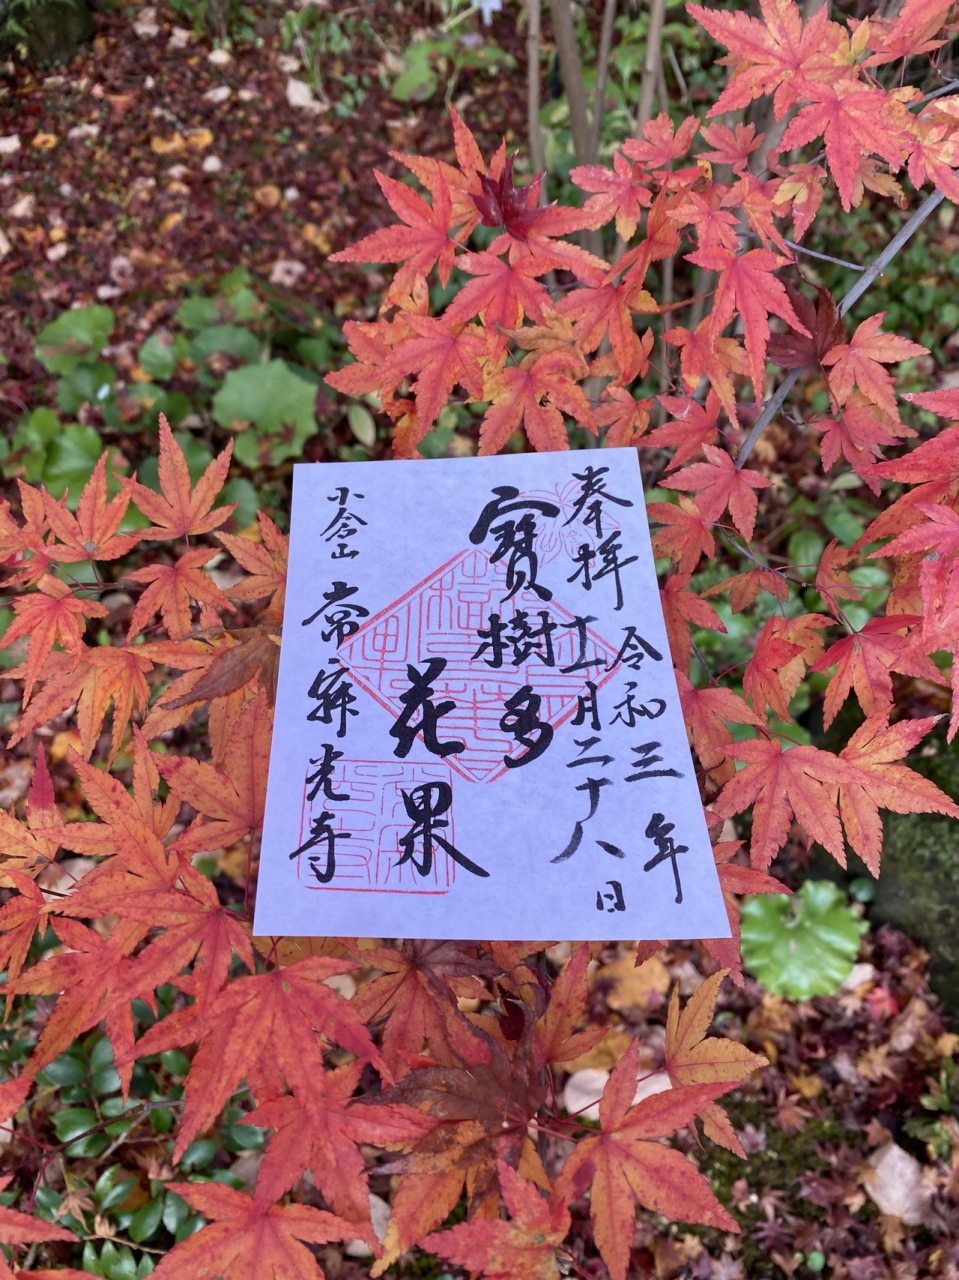 奉拝
令和三年
十一月二十八日
寶樹多
花果
小倉山
常寂光寺